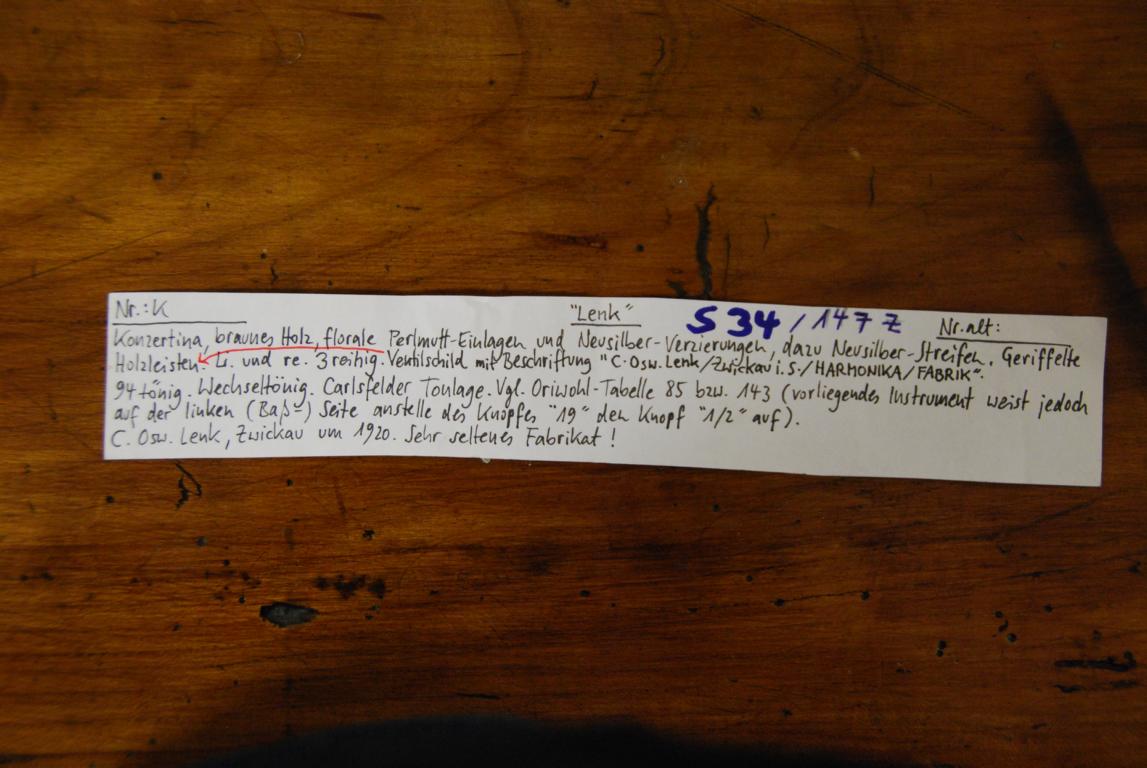 Nr.: K "Lenk" S 34 / 147 Z Nr. alt:
Konzertina, braunes Holz, florale Perlmutt-Einlagen und Neusilber-Verzierungen, dazu Neusilber-Streifen. Geriffelte
Holzleisten. Li. und re. 3reihig. Ventilschild mit Beschriftung "C. Osw. Lenk/Zwickau i. S./HARMONIKA/FABRIK".
94tönig. Wechseltönig. Carlsfelder Tonlage. Vgl. Oriwohl-Tabelle 85 bzw. 143 (vorliegendes Instrument weist jedoch
auf der linken (Baß-) Seite anstelle des Knopfes "19" den Knopf "1/2" auf).
C. Osw. Lenk, Zwickau um 1920. Sehr seltenes Fabrikat!